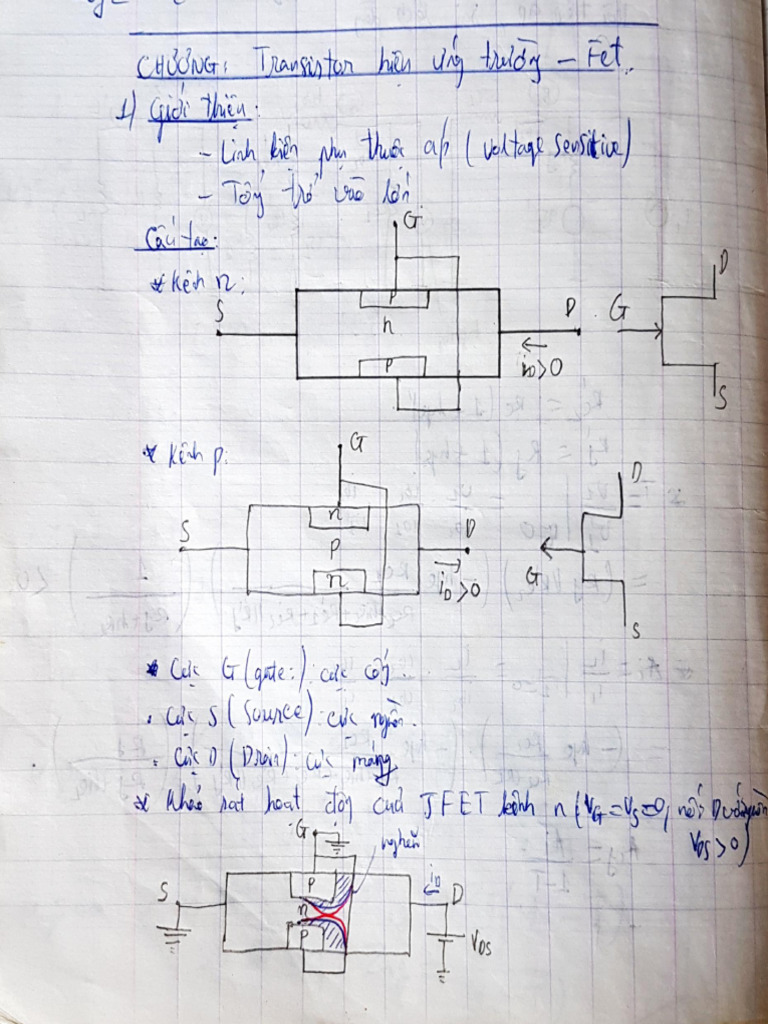 CHƯƠNG: Transistor hiệu ứng trường – Fet.
1) Giới thiệu:
– Linh kiện phụ thuộc a/p (voltage sensitive)
– Tổng trở vào lớn
Cấu tạo:
* Kênh n:
G
S
P
n
P
D
iD>0
G
D
S
* Kênh p:
G
S
n
P
n
D
iD>0
G
D
S
* Cực G (gate:): cực cổng.
. Cực S (Source): cực nguồn.
. Cực D (Drain): cực máng
* Khảo sát hoạt động của JFET kênh n (VG=VS=0, nối D
VDS>0)
G
nghẽn
S
P
n
P
iD
D
VDS